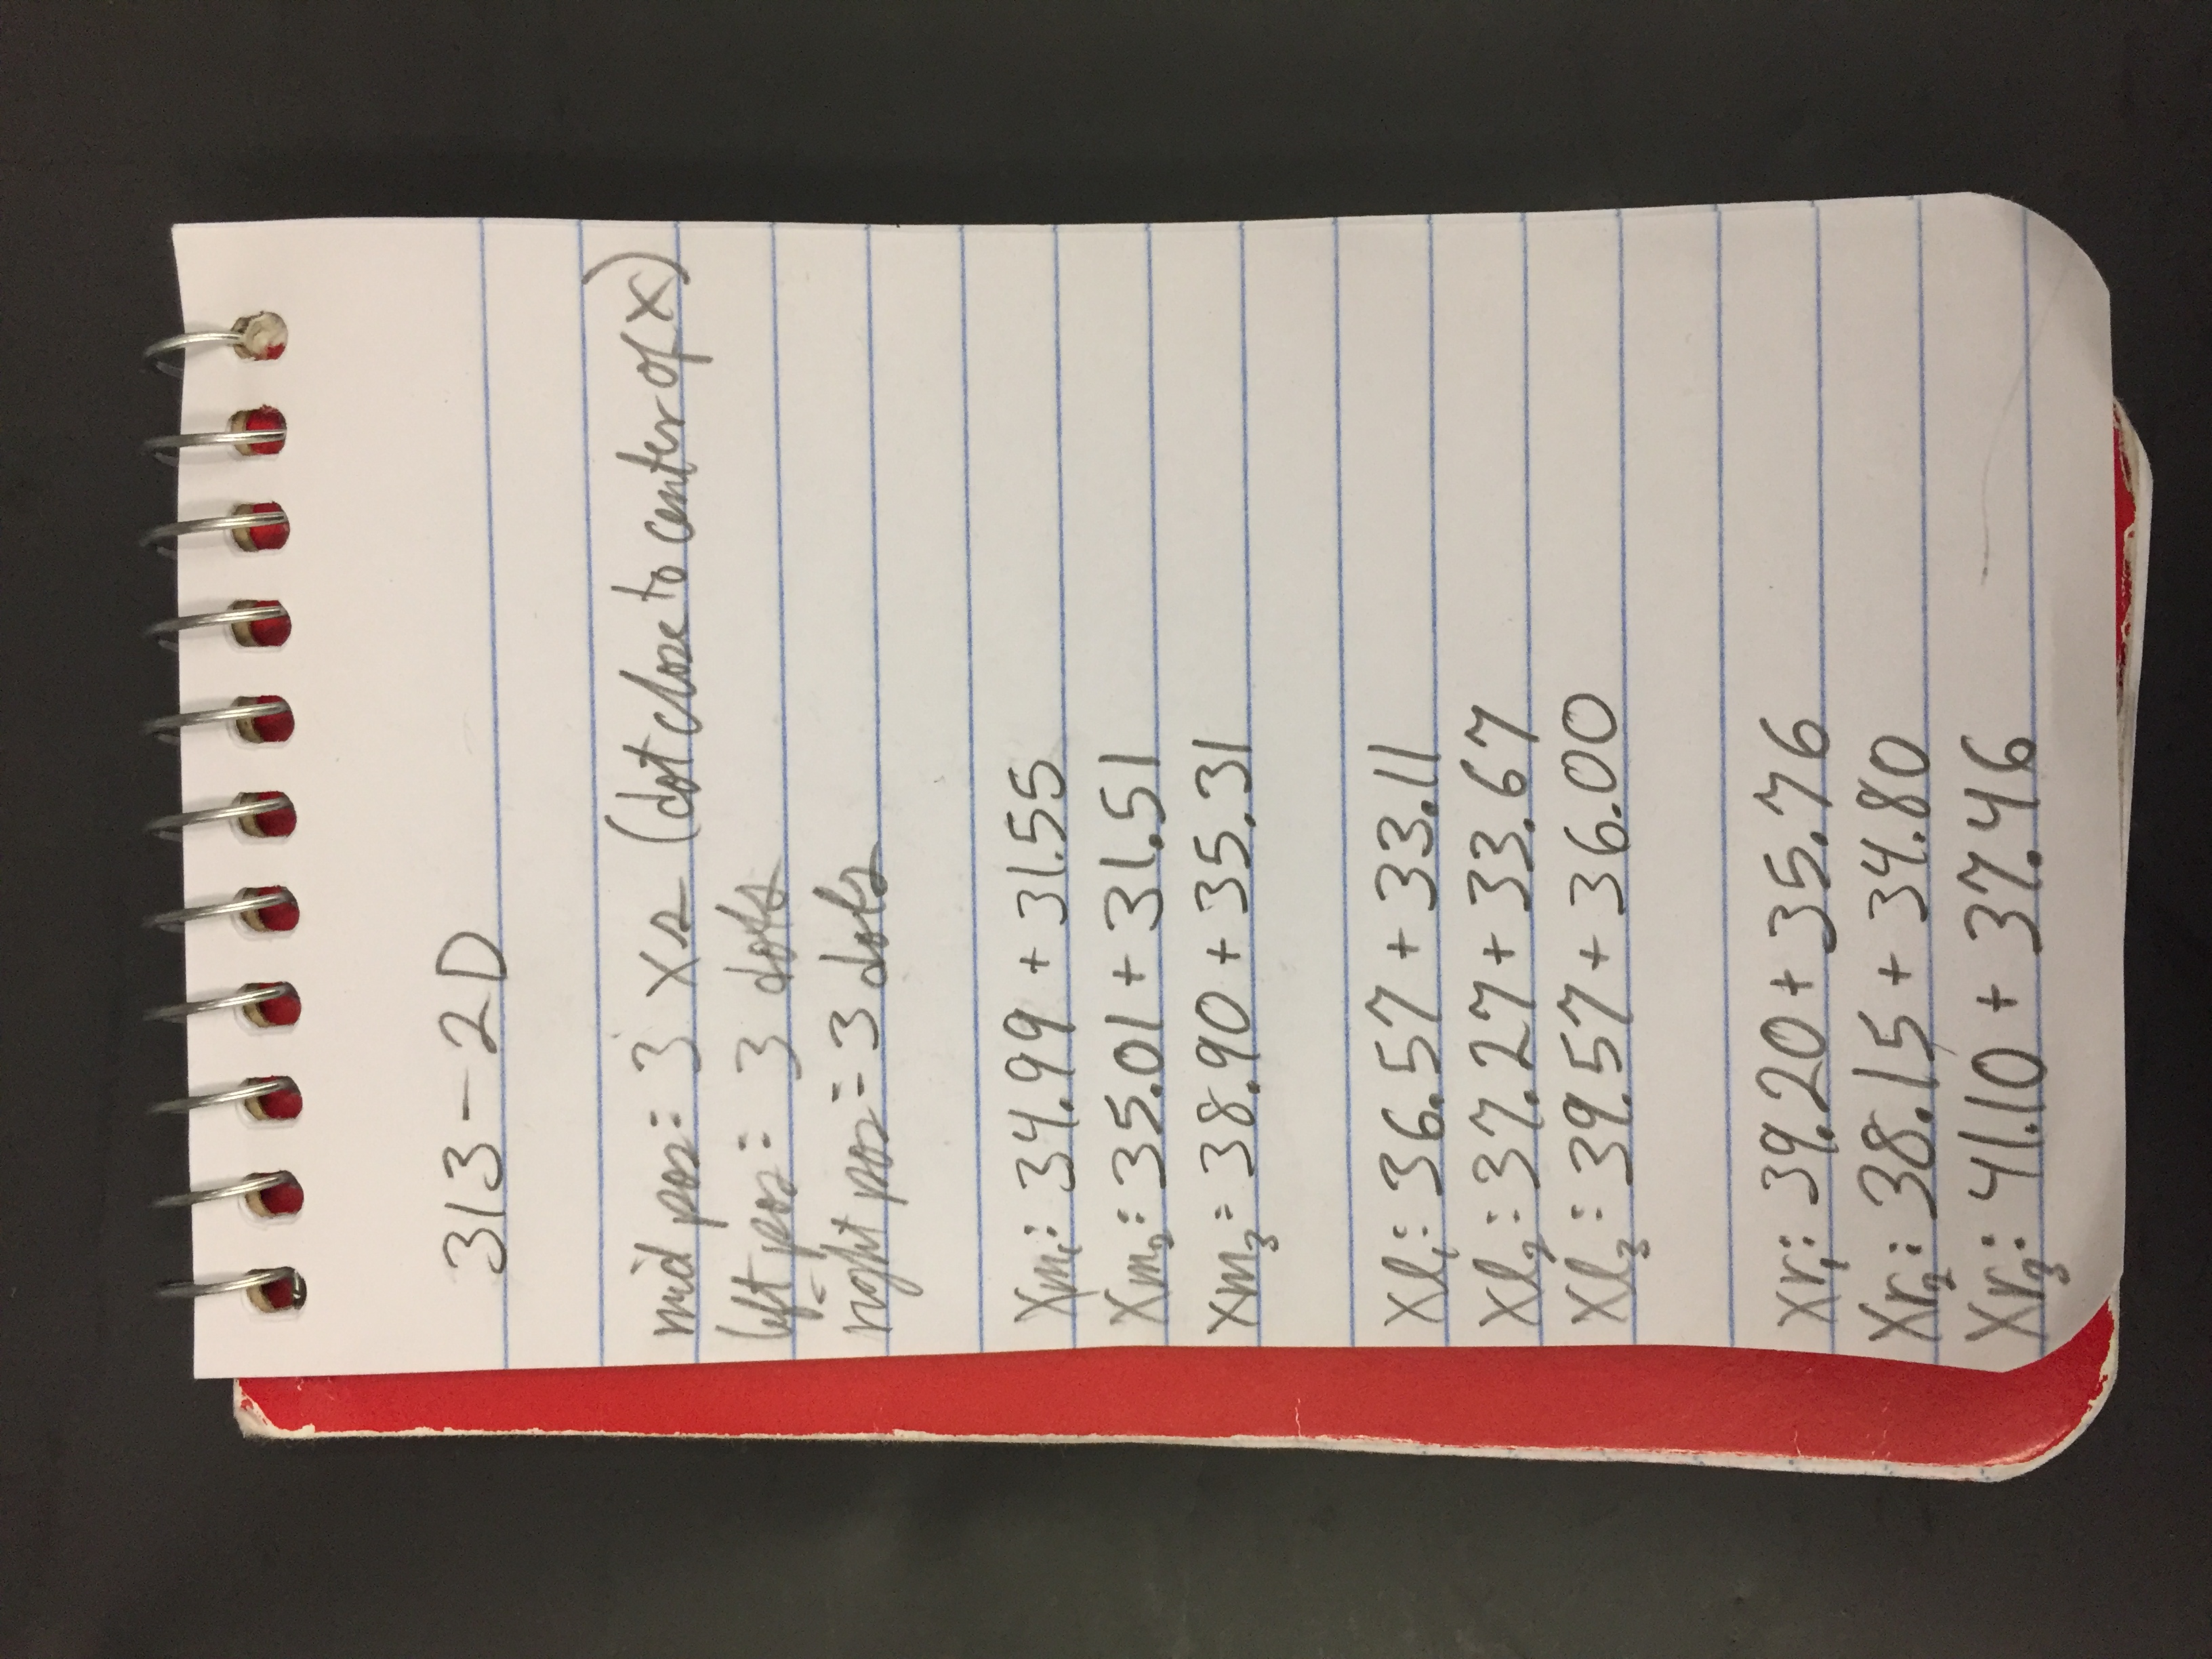 313-2D
mid pos: 3 Xs (dot close to center of X)
left pos: 3 dots
right pos: 3 dots
Xm₁: 34.99 + 31.55
Xm₂: 35.01 + 31.51
Xm₃: 38.90 + 35.31
Xl₁: 36.57 + 33.11
Xl₂: 37.27 + 33.67
Xl₃: 39.57 + 36.00
Xr₁: 39.20 + 35.76
Xr₂: 38.15 + 34.80
Xr₃: 41.10 + 37.46